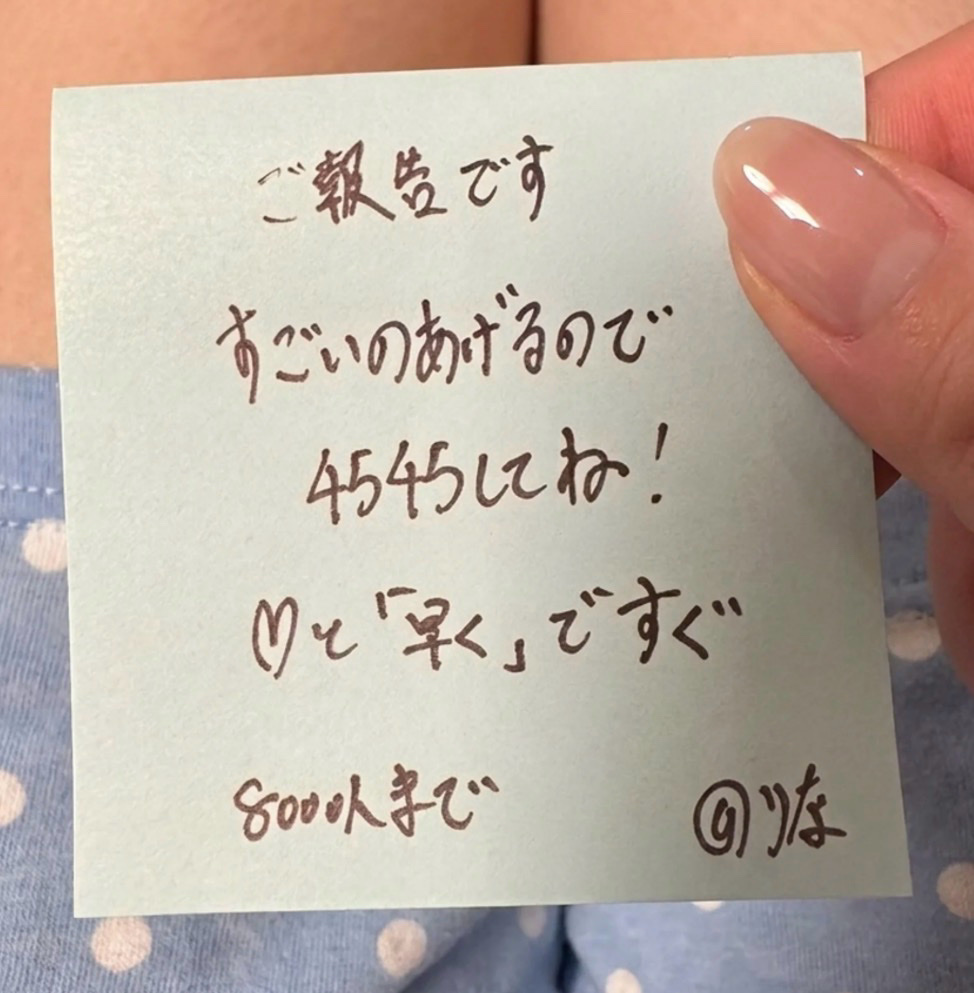 ご報告です
すごいのあげるので
4545してね!
♡と「早く」ですぐ
8000人まで
@りな